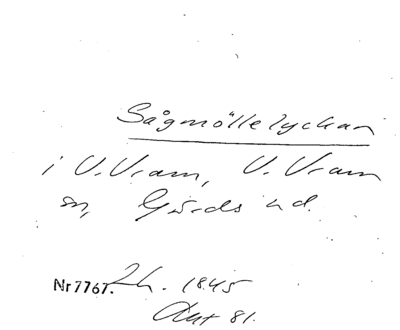 Sågmöllelyckan
i V. Vram, V. Vram
sn, Gärds hd.
Nr 7767. 2 h. 1845
Akt 81.